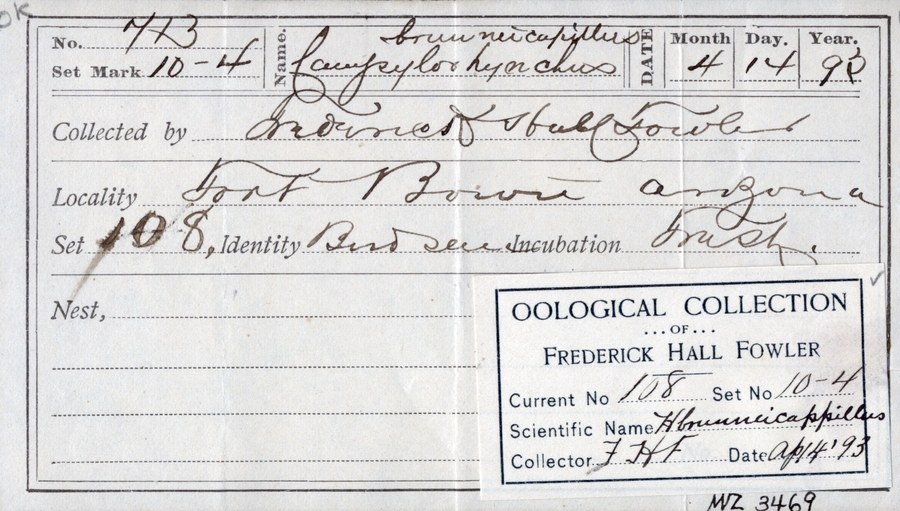 OK
No. 713 Name. brunneicapillus DATE Month Day. Year.
Set Mark 10-4 Campsylorhynchus 4 14 93
Collected by Frederick Hall Fowler
Locality Fort Bowie Arizona
Set 108, Identity Bird seen Incubation Fresh.
Nest,
OOLOGICAL COLLECTION
...OF...
FREDERICK HALL FOWLER
Current No 108 Set No 10-4
Scientific Name H brunneicappillus
Collector F H F Date Ap 14 '93
MVZ 3469